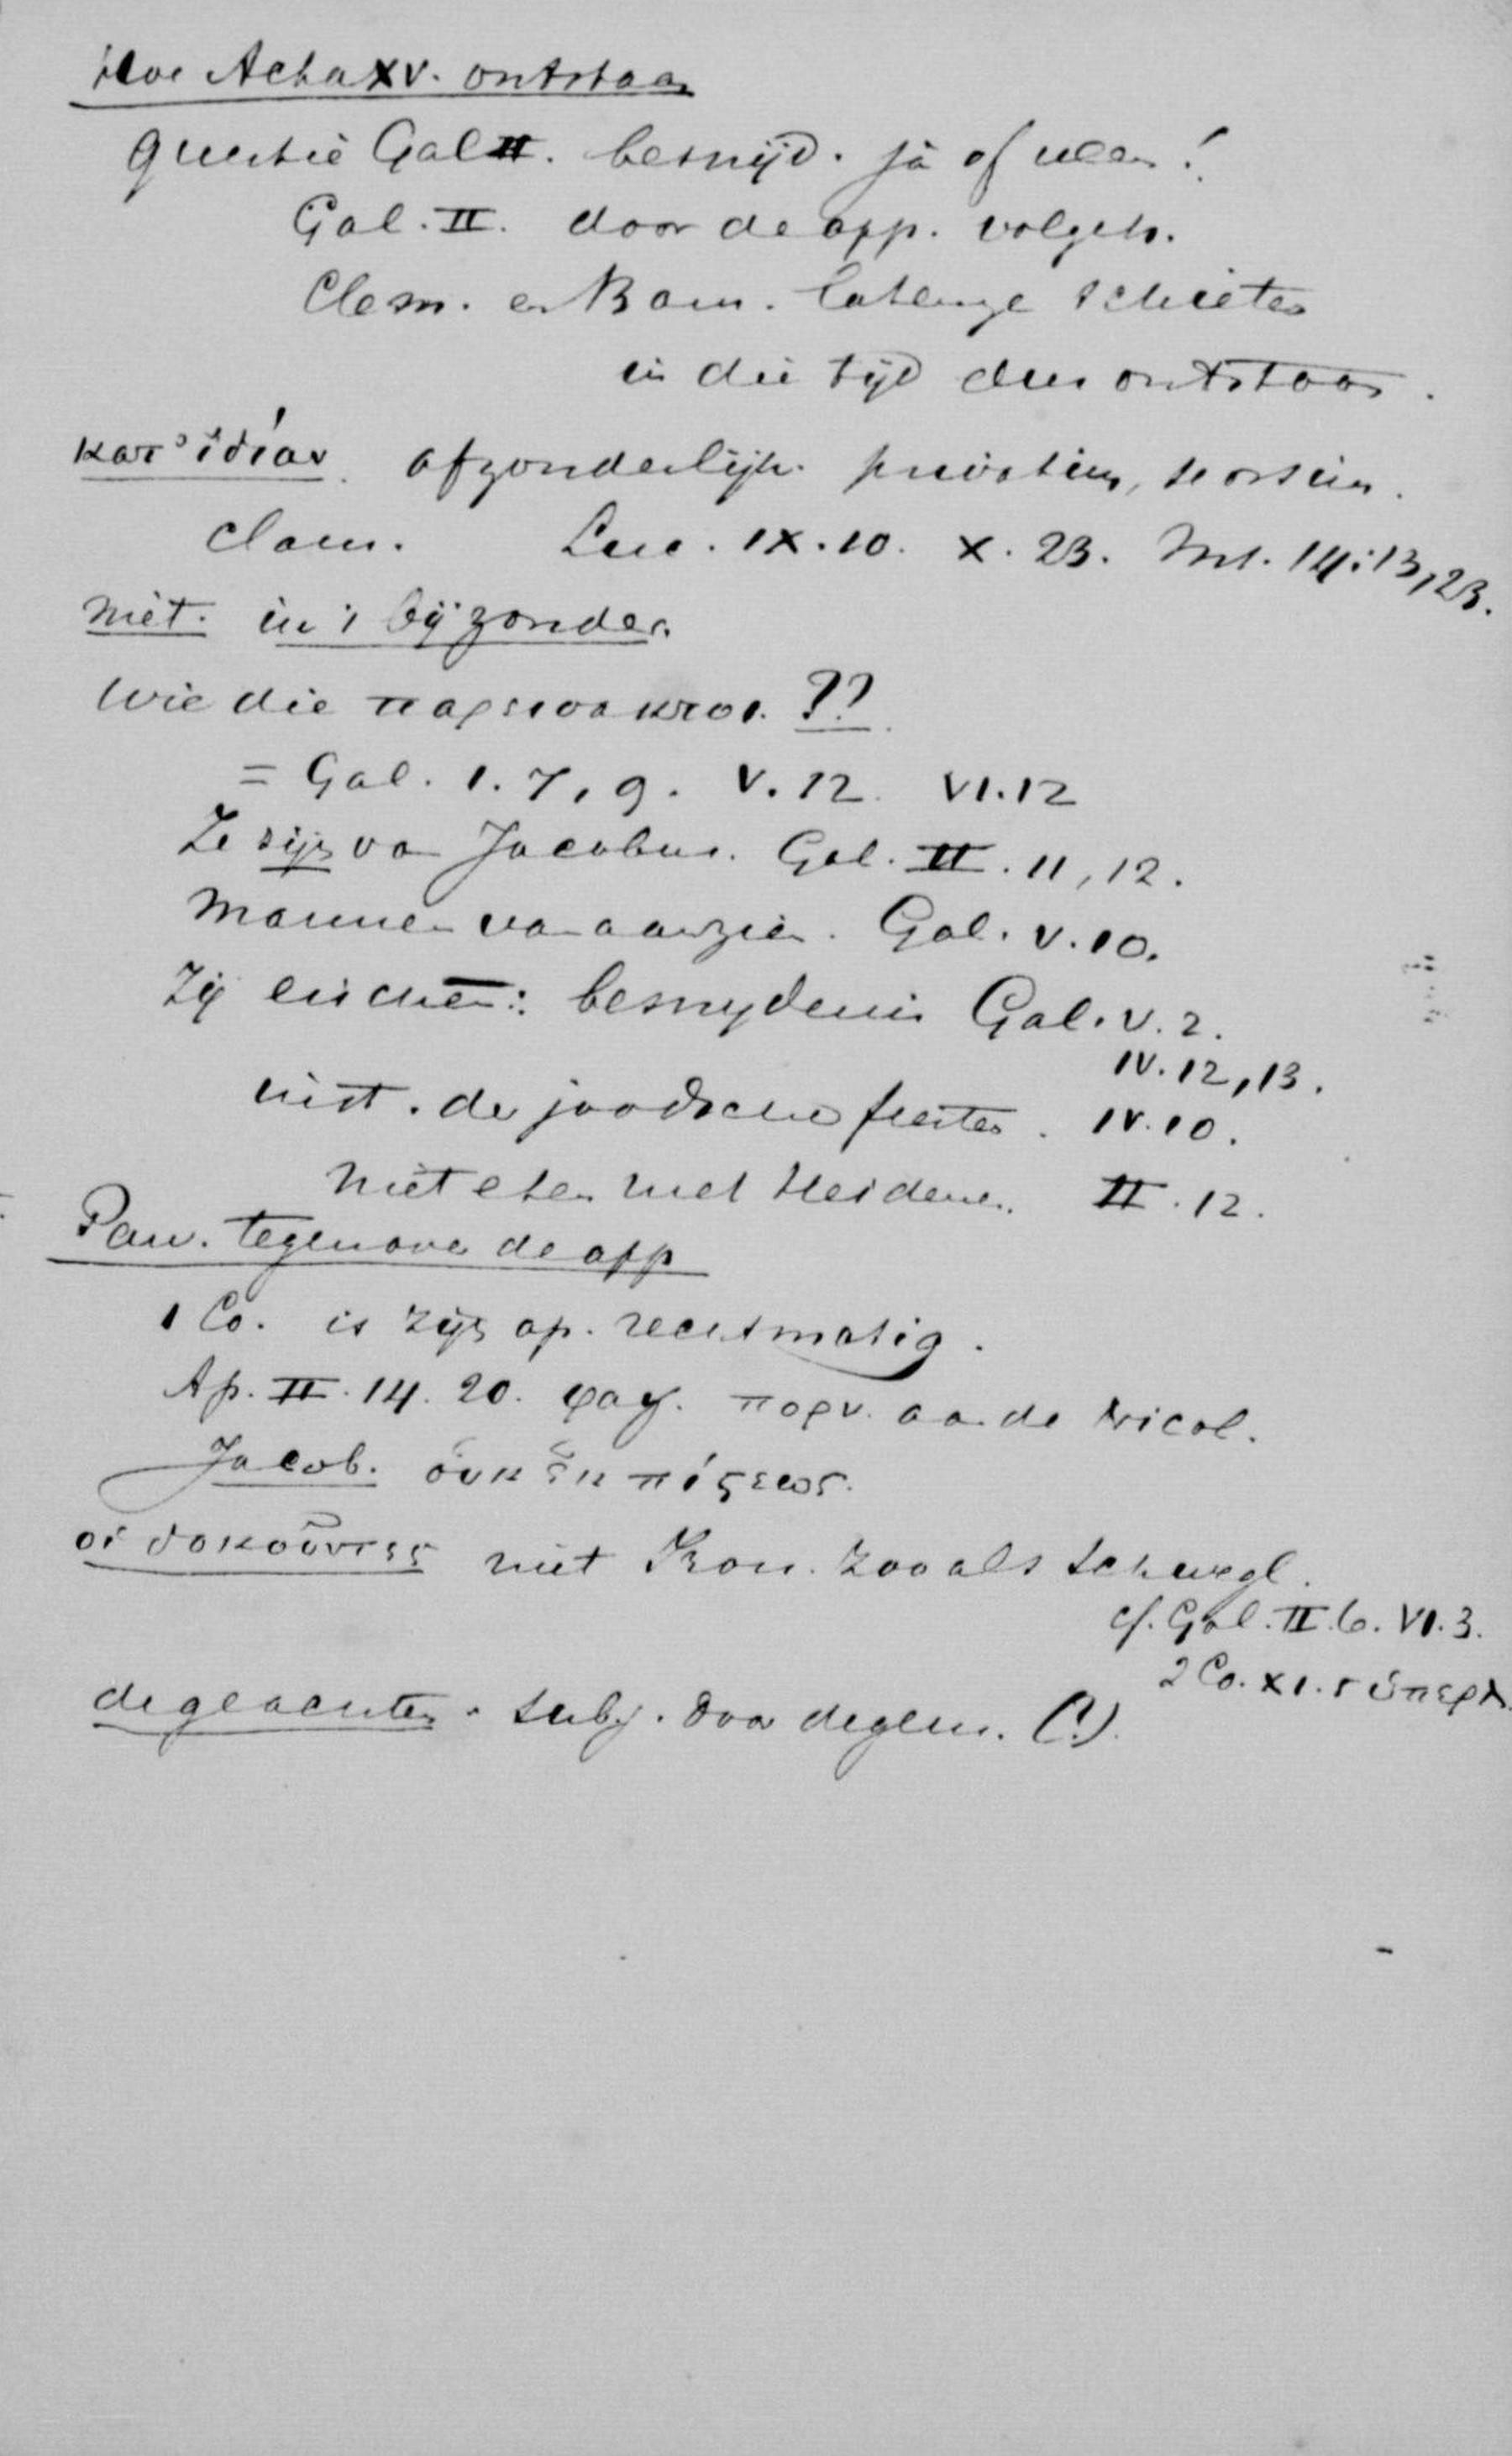 Hoe Acta XV. ontstaan
Quaestie Gal II. besnijd. ja of neen!
Gal. II. door de app. volgeh.
Clem. en Barn. laten ze schieten
in die tijd dus ontstaan.
κατ' ἰδίαν. afzonderlijk. privatim, seorsim.
clam. Luc. IX. 10. X. 23. Mt. 14:13, 23.
niet. in 't bijzonder.
Wie die παρεισακτοι. ??
= Gal. 1. 7, 9. V. 12. VI. 12
Ze zijn van Jacobus. Gal. II. 11, 12.
Mannen van aanzien. Gal. V. 10.
Zij eischen: besnydenis Gal. V. 2.
IV. 12, 13.
de joodsche feesten. IV. 10.
Niet eten met Heidenen. II. 12.
Pau. tegenover de app
1 Co. is zijn ap. rechtmatig.
Ap. II. 14. 20. φαγ. πορν. aan de Nicol.
Jacob. οὐκ ἐκ πίστεως.
οἱ δοκοῦντες niet Iron. zooals Schwegl.
cf. Gal. II. 6. VI. 3.
2 Co. XI. 5 ὑπερλ.
de geachten. subj. door de gem. (?).